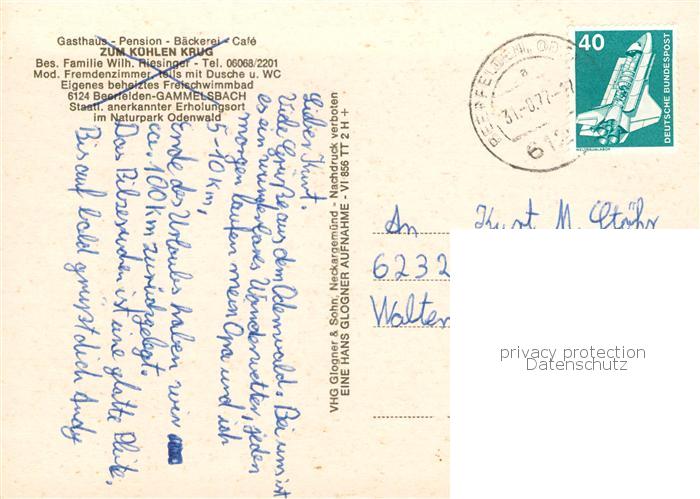 Gasthaus - Pension - Bäckerei - Café
ZUM KÜHLEN KRUG
Bes. Familie Wilh. Riesinger - Tel. 06068/2201
Mod. Fremdenzimmer, teils mit Dusche u. WC
Eigenes beheiztes Freischwimmbad
6124 Beerfelden-GAMMELSBACH
Staatl. anerkannter Erholungsort
im Naturpark Odenwald
Lieber Kurt.
Viele Grüße aus dem Odenwald. Bei uns ist
es ein wunderbares Wanderwetter, jeden
morgen laufen mein Opa und ich
5-10 km,
Ende des Urlaubs haben wir
ca. 100 km zurückgelegt.
Das Pilzesuchen ist eine glatte Pleite.
Bis auf bald grüßt dich Andy
VHG Glogner & Sohn, Neckargemünd - Nachdruck verboten
EINE HANS GLOGNER AUFNAHME - VI 856 TT 2 H +
BEERFELDEN, OD
a
31.-8.77
612
40
DEUTSCHE BUNDESPOST
WELTRAUMLABOR
An Kurt M. Stöhr
6232
Walter
privacy protection
Datenschutz